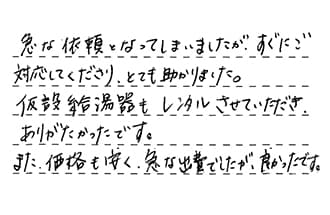 急な依頼となってしまいましたが、すぐにご
対応してくださり、とても助かりました。
仮設給湯器もレンタルさせていただき、
ありがたかったです。
また、価格も安く、急な出費でしたが、良かったです。